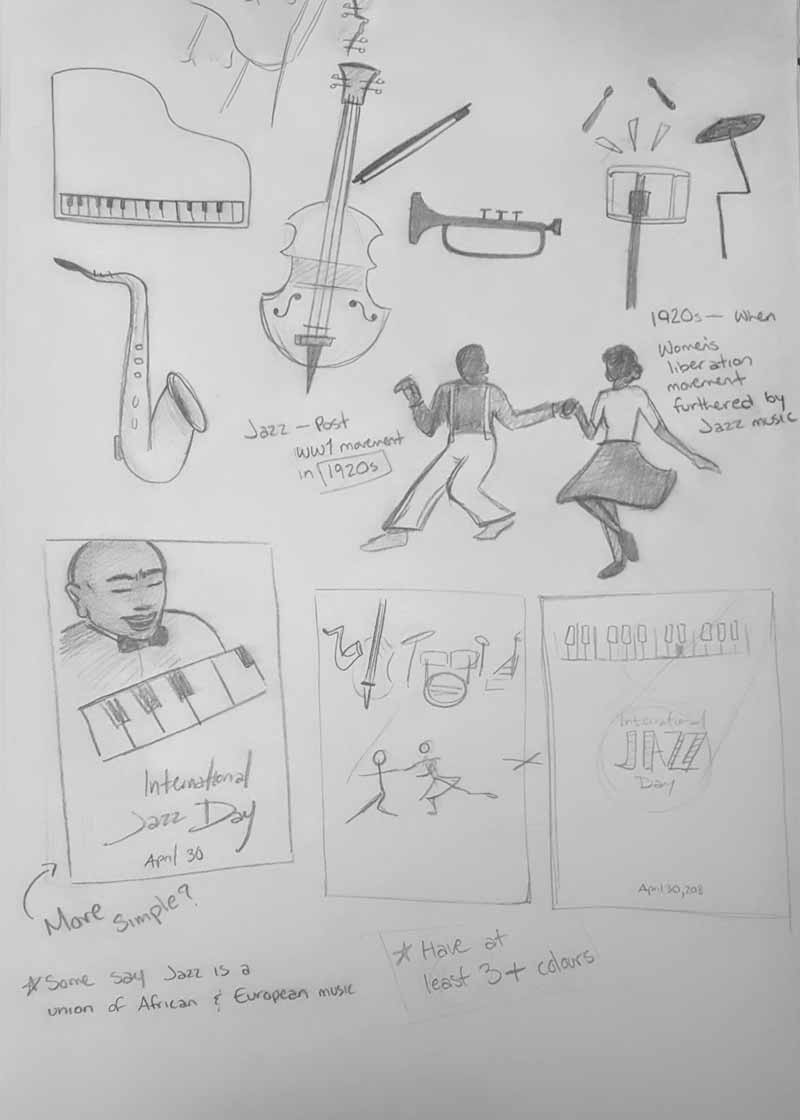 1920s — When
Women's
liberation
movement
furthered by
Jazz music
Jazz — Post
WW1 movement
in 1920s
International
Jazz Day
April 30
International
JAZZ
Day
April 30, 208
More Simple?
* Some say Jazz is a
union of African & European music
* Have at
least 3+ colours